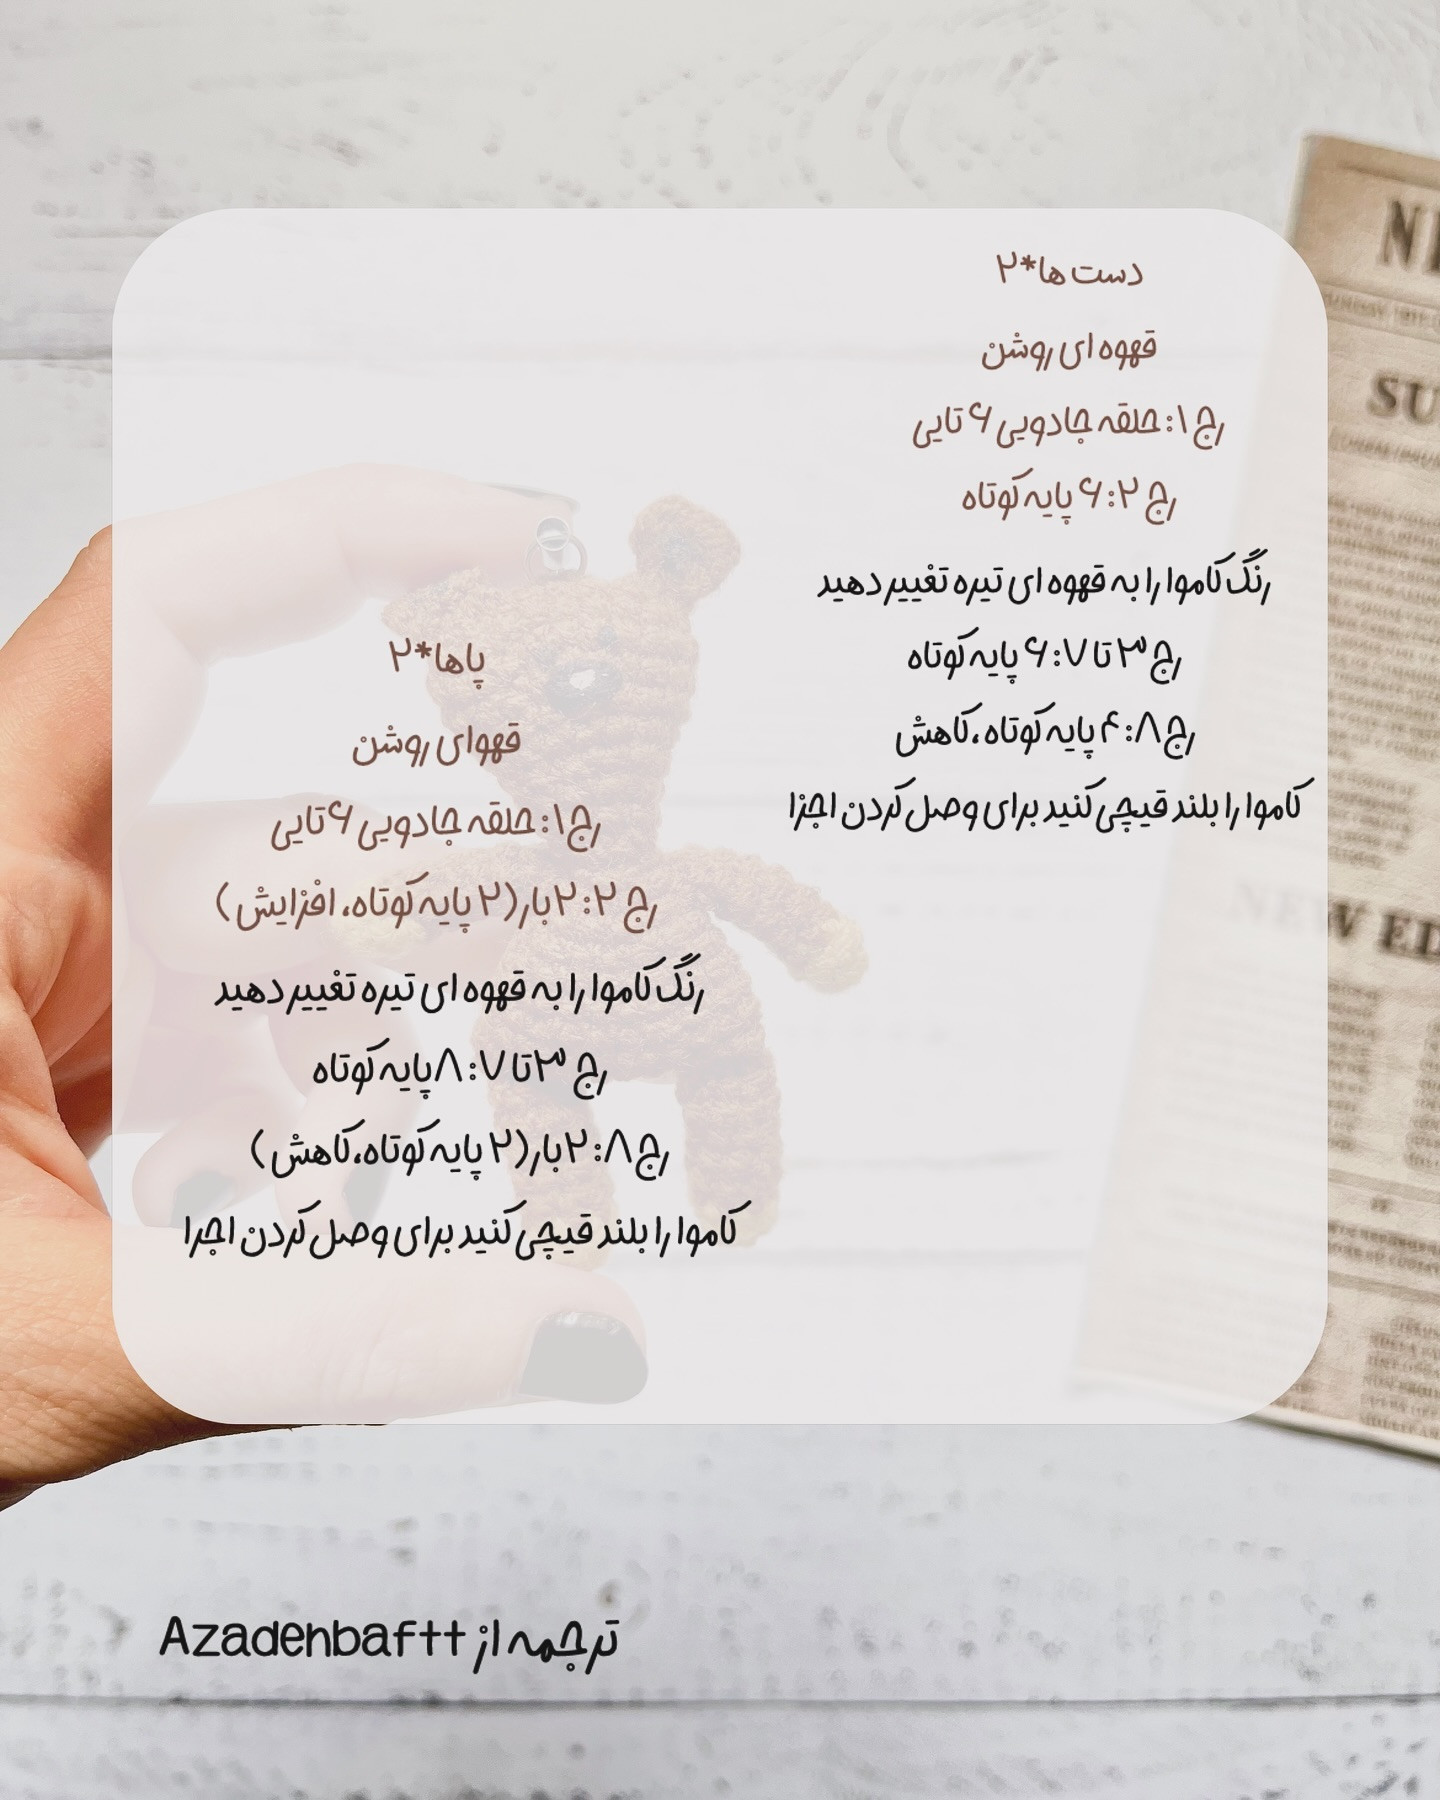 دست ها*۲
قهوه ای روشن
رج ۱: حلقه جادویی ۶ تایی
رج ۲: ۶ پایه کوتاه
رنگ کاموا را به قهوه ای تیره تغییر دهید
رج ۳ تا ۷: ۶ پایه کوتاه
رج ۸: ۴ پایه کوتاه، کاهش
کاموا را بلند قیچی کنید برای وصل کردن اجزا
پاها*۲
قهوای روشن
رج ۱: حلقه جادویی ۶ تایی
رج ۲: ۲ بار (۲ پایه کوتاه، افزایش)
رنگ کاموا را به قهوه ای تیره تغییر دهید
رج ۳ تا ۷: ۸ پایه کوتاه
رج ۸: ۲ بار (۲ پایه کوتاه، کاهش)
کاموا را بلند قیچی کنید برای وصل کردن اجرا
ترجمه از Azadenbaftt
NE
SU
NEW ED